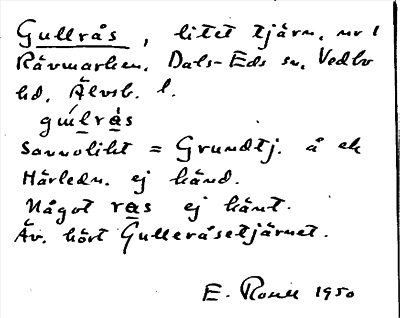 Gullrås, litet tjärn, nv i
Rävmarken, Dals-Eds sn, Vedbo
hd, Älvsb. l.
gu̍l̠rås
Sannolikt = Grundtj. å ek
Härledn. ej känd.
Något rås ej känt.
Äv. hört Gulleråsetjärnet.
E. 1950